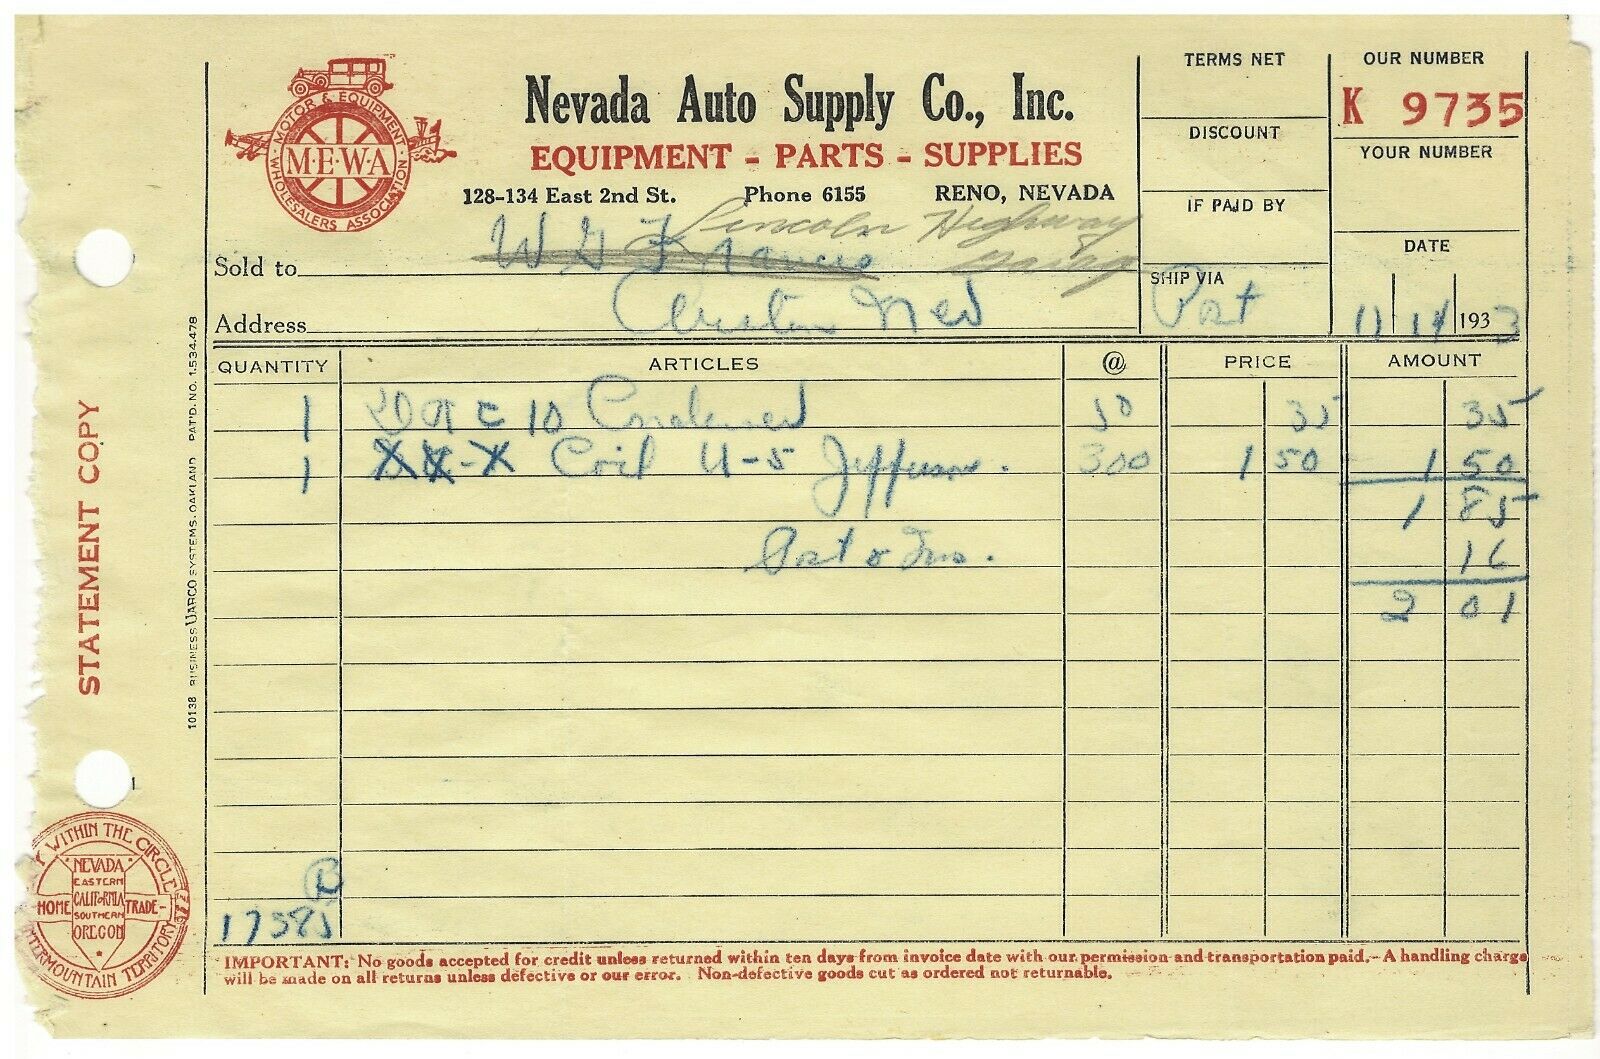 MOTOR & EQUIPMENT
WHOLESALERS ASSOCIATION
M·E·W·A
Nevada Auto Supply Co., Inc.
EQUIPMENT - PARTS - SUPPLIES
128-134 East 2nd St. Phone 6155 RENO, NEVADA
TERMS NET
DISCOUNT
IF PAID BY
SHIP VIA Post
OUR NUMBER
K 9735
YOUR NUMBER
DATE
11 14 1933
Lincoln Highway
Garage
Sold to W G Francis
Address Austin Nev
QUANTITY ARTICLES @ PRICE AMOUNT
1 C 10 Condenser 50 35 35
1 Coil U-5 Jefferson. 300 1 50 1 50
1 85
Post & Ins. 16
2 01
17585
STATEMENT COPY
10138 BUSINESS UARCO SYSTEMS. OAKLAND PAT'D. NO. 1.534.478
WITHIN THE CIRCLE
NEVADA
EASTERN
HOME CALIFORNIA TRADE-
SOUTHERN
OREGON
INTERMOUNTAIN TERRITORY
IMPORTANT: No goods accepted for credit unless returned within ten days from invoice date with our permission and transportation paid.- A handling charge
will be made on all returns unless defective or our error. Non-defective goods cut as ordered not returnable.